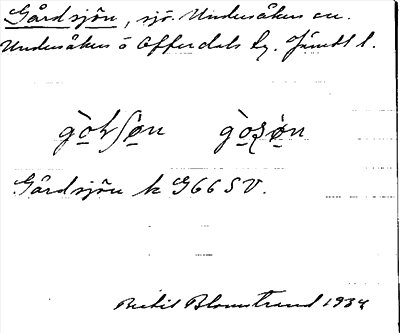 Gårdsjön, sjö. Undersåkers sn.
Undersåkers o Offerdals tg. Jämtl l.
gò̲tʃø̲n gò̲ʂø̲n
Gårdsjön k G66SV.
Bertil Blomstrand 1934